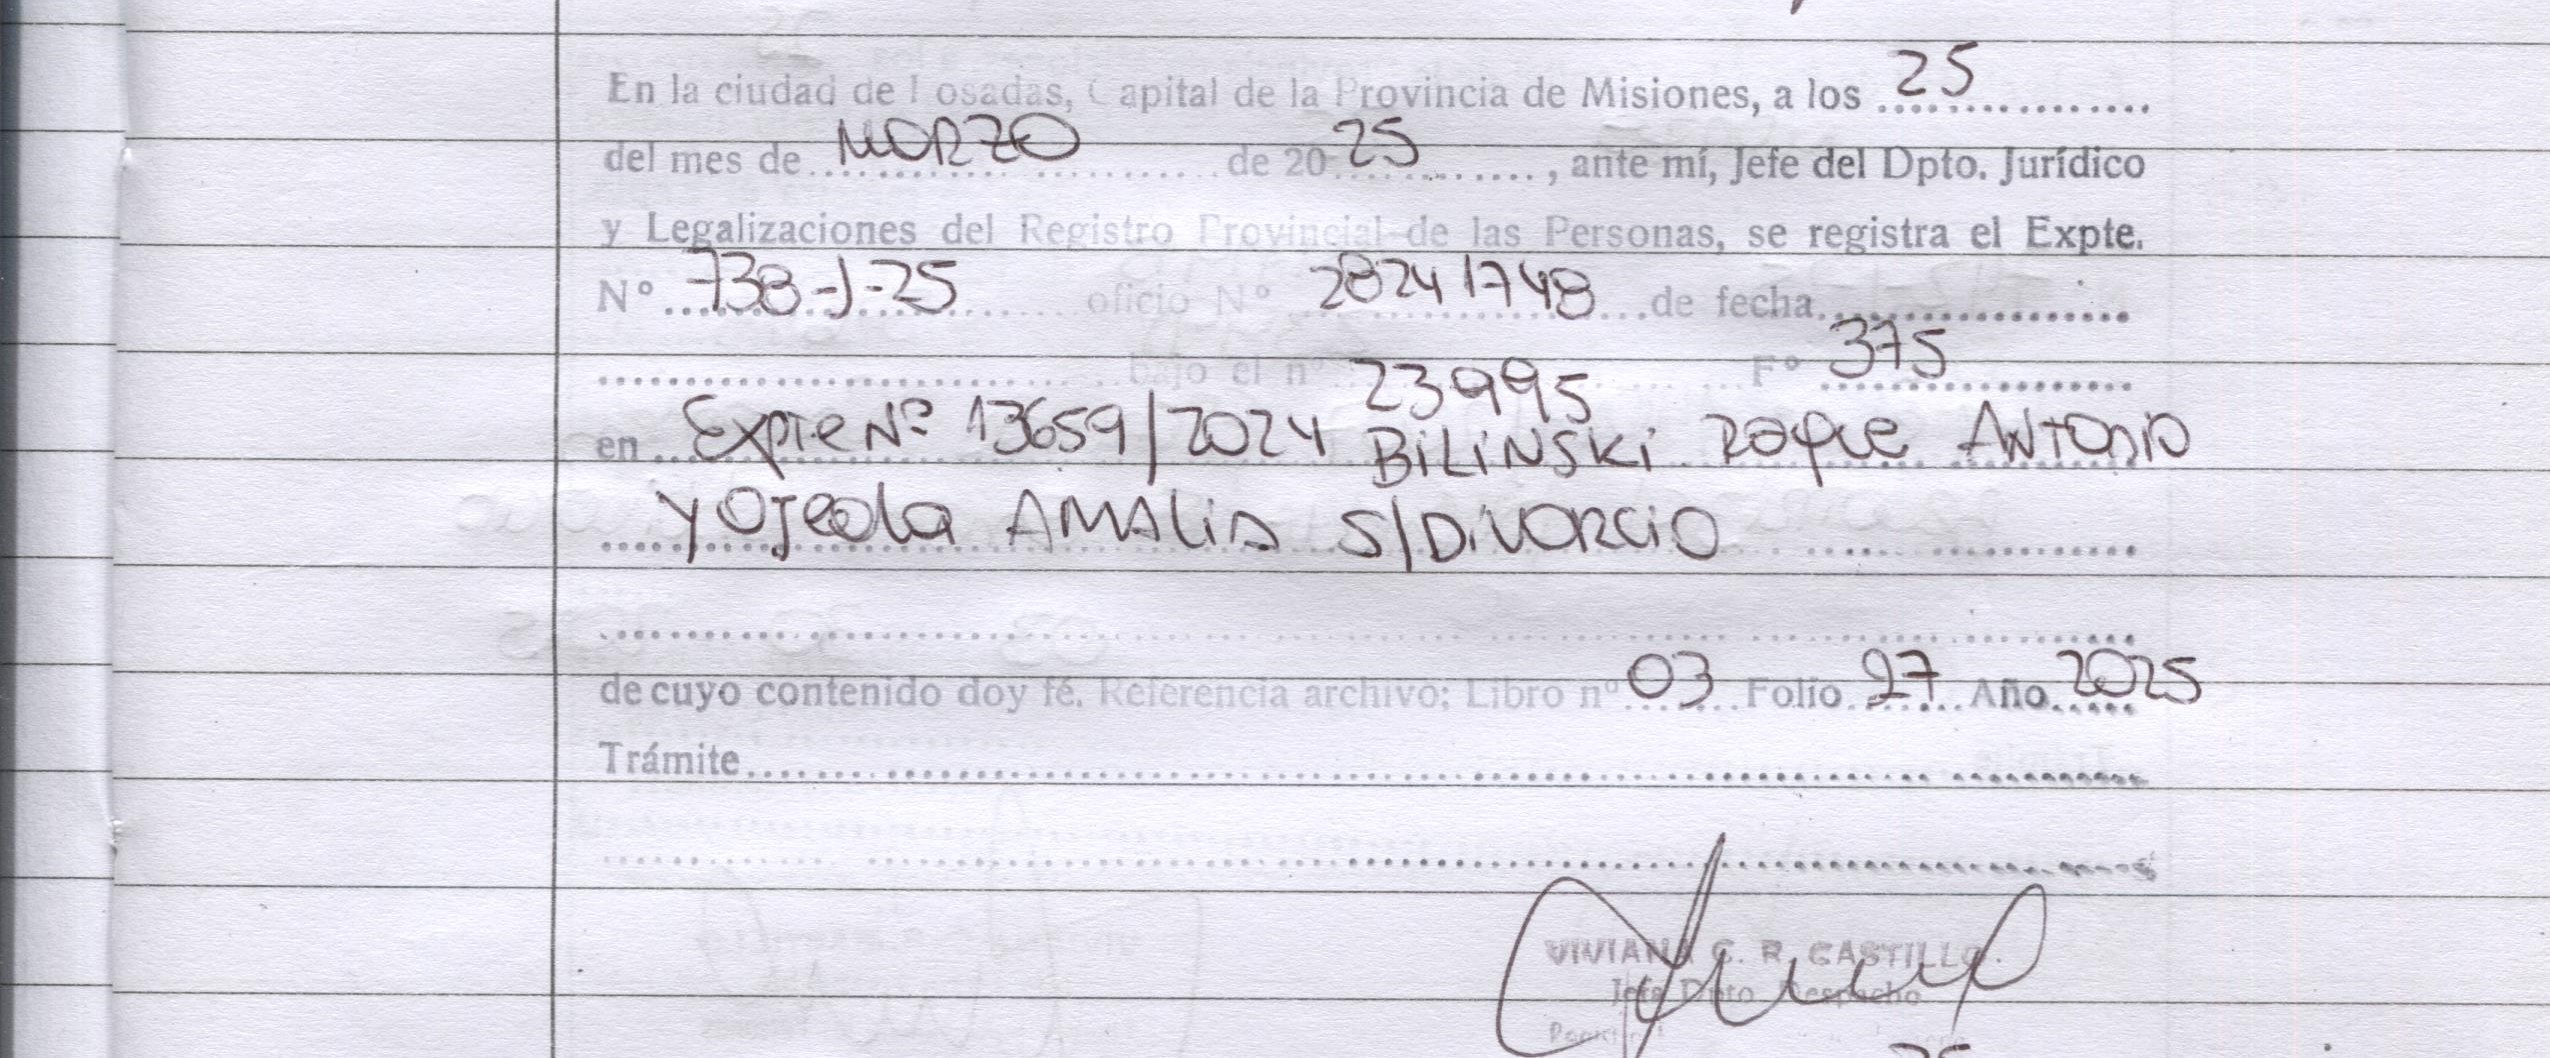 En la ciudad de Posadas, Capital de la Provincia de Misiones, a los 25
del mes de MARZO de 2025, ante mí, Jefe del Dpto. Jurídico
y Legalizaciones del Registro Provincial de las Personas, se registra el Expte.
Nº 738-J-25 oficio Nº 28241748 de fecha
bajo el nº 23995 Fº 375
en Expte Nº 13659/2024 BILINSKI Roque ANTONIO
y Ojeda AMALIA S/DIVORCIO
de cuyo contenido doy fé. Referencia archivo: Libro nº 03 Folio 97 Año 2025
Trámite
VIVIANA C. R. CASTILLO
Jefa Dpto Despacho